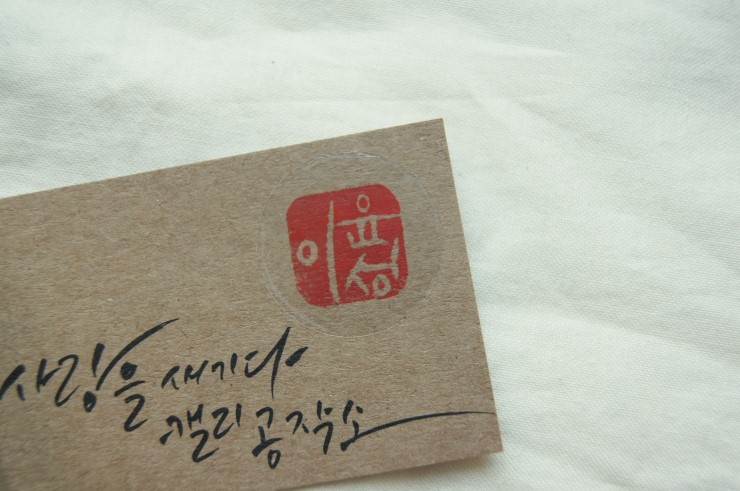 이
사랑을 새기다
캘리 공작소